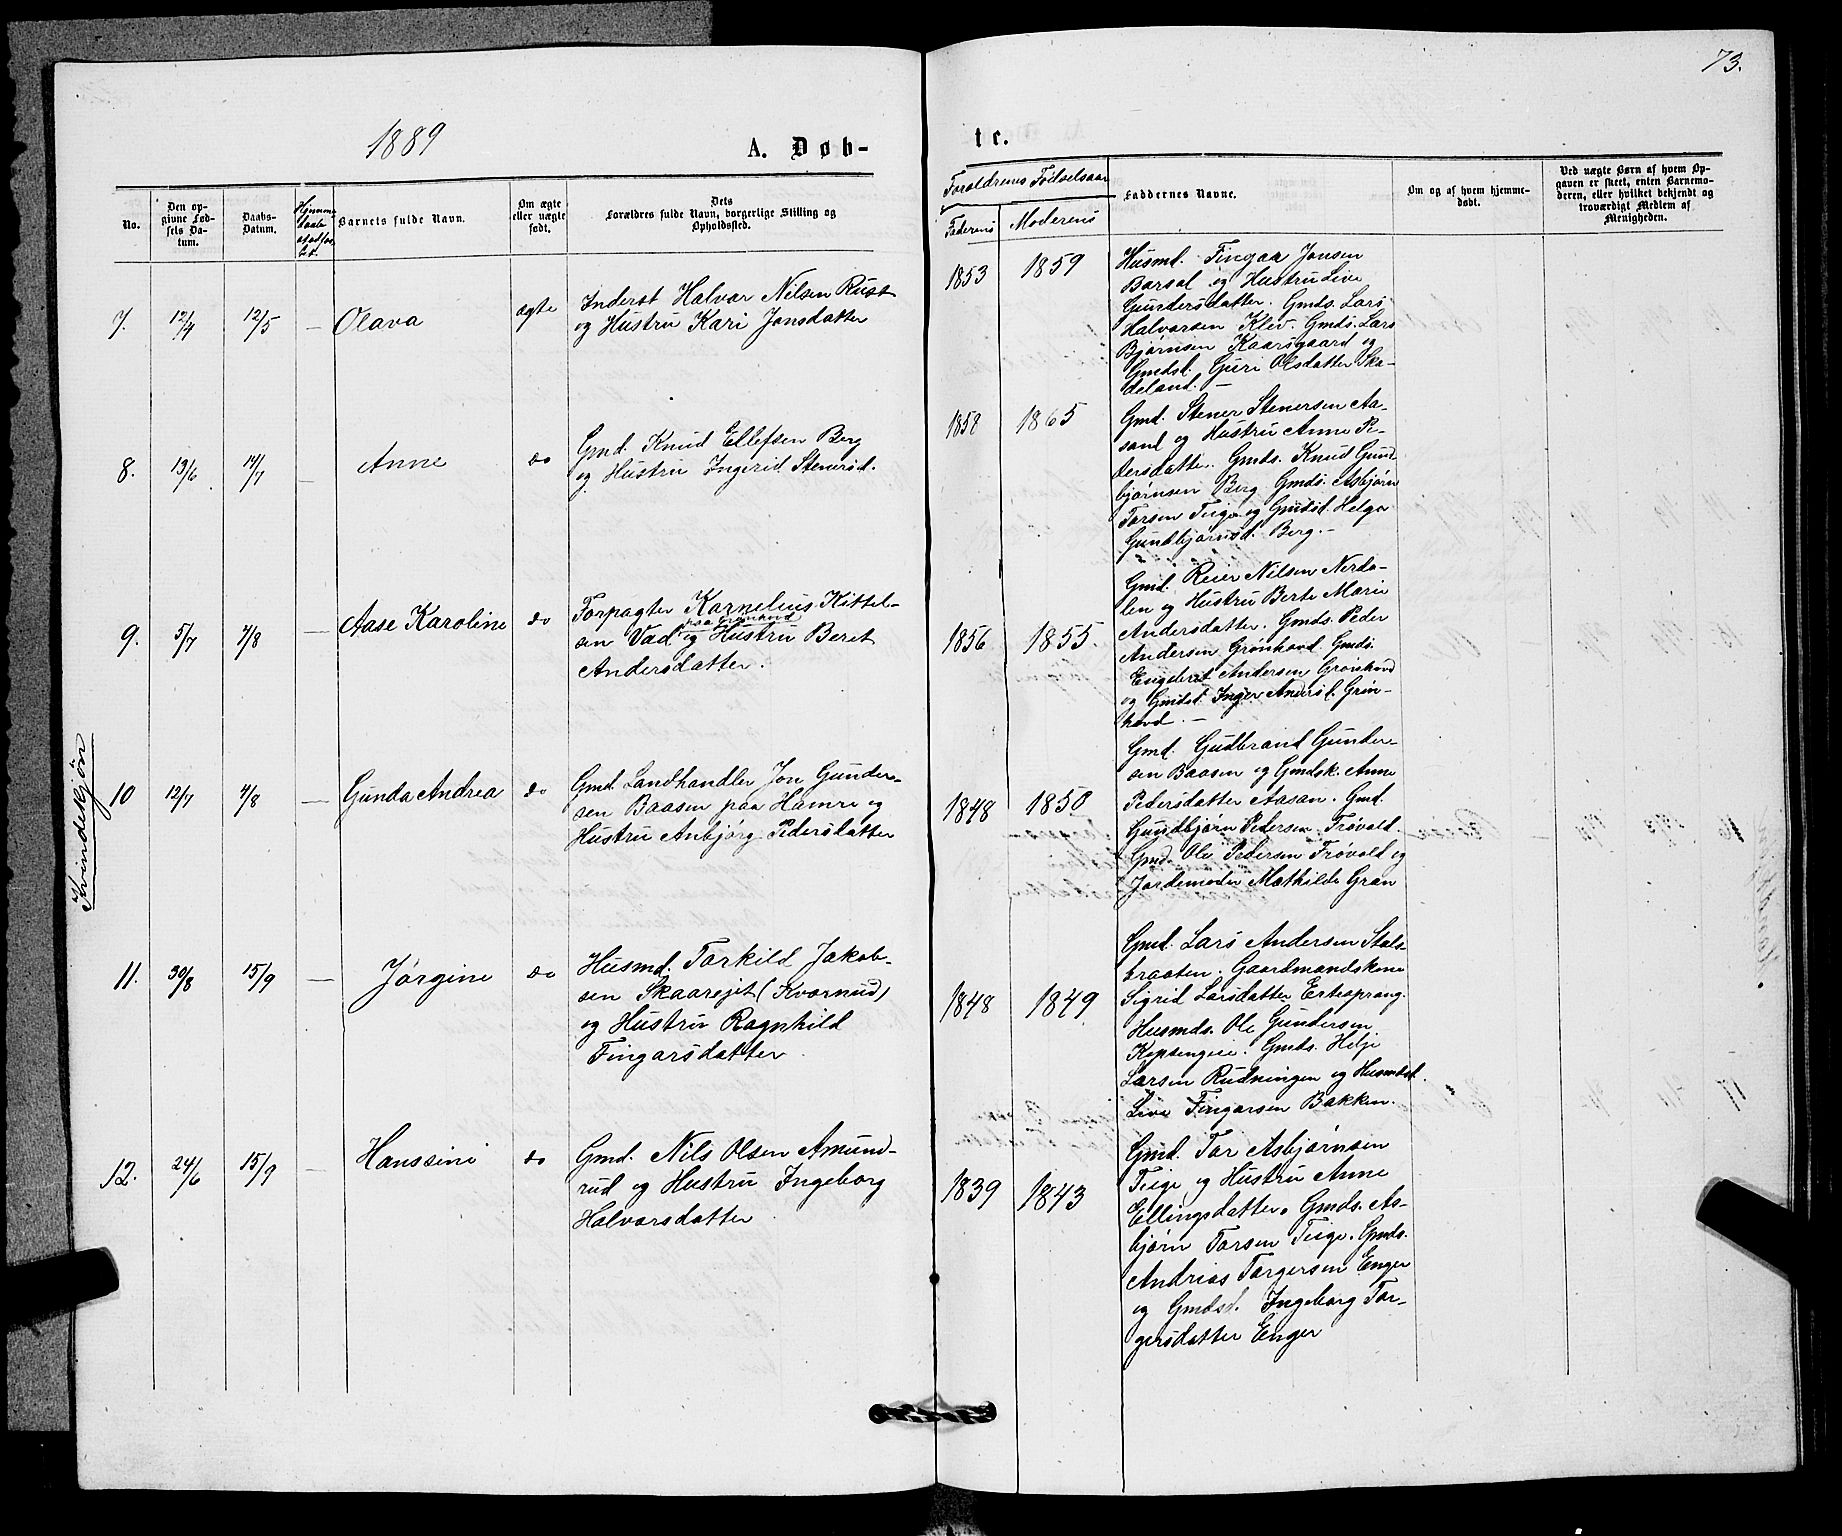 73.
1889
A. Døb-
te.
No.
Den op-
givne Fød-
sels Da-
tum.
Daabs-
Datum.
Barnets fulde Navn.
Om ægte
eller uægte
født.
Dets
Forældres fulde Navn, borgerlige Stilling og
Opholdssted.
Foraldrenes Fødselsaar
Faderens
Moderens
Faddernes Navne.
Om og af hvem hjemme-
døbt.
Ved uægte Børn af hvem Op-
gaven er skeet, enten Barnemo-
deren, eller hvilket bekjendt og
troværdigt Medlem af
Menigheden.
Kvindekjøn
7. 12/4 12/5 — Olava ægte
Inderst Halvor Nilsen Rust
og Hustru Kari Jonsdatter
1853 1859
Husmd. Fingar Jonsen
Barsal og Hustru Live
Gundersdatter. Gmds. Lars
Halvorsen Klev. Gmds. Lars
Bjørnsen Kaarsgaard og
Gmdsd. Guri Olsdatter Ska-
deland. —
8. 19/6 14/7 — Anne do
Gmd. Knud Ellefsen Berg
og Hustru Ingerid Stenersd.
1858 1865
Gmd. Stener Stenersen Aa-
sand og Hustru Anne P-
dersdatter. Gmds. Knud Gund-
bjørnsen Berg. Gmds. Asbjørn
Torsen Teige og Gmdsd. Helga
Gundbjørnsd. Berg. —
9. 5/7 4/8 — Aase Karoline do
Forpagter Karnelius Kittel-
sen Vad paa Grønhovd og Hustru Beret
Andersdatter.
1856 1855.
Gmd. Reier Nilsen Nerda-
len og Hustru Berte Marie
Andersdatter. Gmds. Peder
Andersen Grønhovd. Gmds.
Engebret Andersen Grønhovd
og Gmdsd. Inger Andersd. Grøn-
hovd. —
10 12/7 4/8 — Gunda Andrea do
Gmd. Landhandler Jon Gunder-
sen Baasen paa Hamre og
Hustru Anbjørg Pedersdatter
1848 1850
Gmd. Gudbrand Gunder-
sen Baasen og Gmdsk. Anne
Pedersdatter Aasan. Gmd.
Gundbjørn Pedersen Trøvald.
Gmd. Ole Pedersen Trøvald og
Jordemoder Mathilde Gran
11. 30/8 15/9 — Jørgine do
Husmd. Torkild Jakob-
sen Skaarejet (Kvornud)
og Hustru Ragnhild
Fingarsdatter.
1848 1849
Gmd. Lars Andersen Stals-
braaten. Gaardmandskone
Sigrid Larsdatter Ertesprang.
Husmds. Ole Gundersen
Kopsengeie. Gmds. Helje
Larsen Rudningen og Husmdsd.
Live Fingarsen Bakken.
12. 24/6 15/9 — Hanssine do
Gmd. Nils Olsen Amund-
rud og Hustru Ingeborg
Halvorsdatter
1839 1843
Gmd. Tor Asbjørnsen
Teige og Hustru Anne
Ellingsdatter. Gmds. As-
bjørn Torsen Teige. Gmds.
Andrias Torgersen Enger
og Gmdsd. Ingeborg Tor-
gersdatter Enger